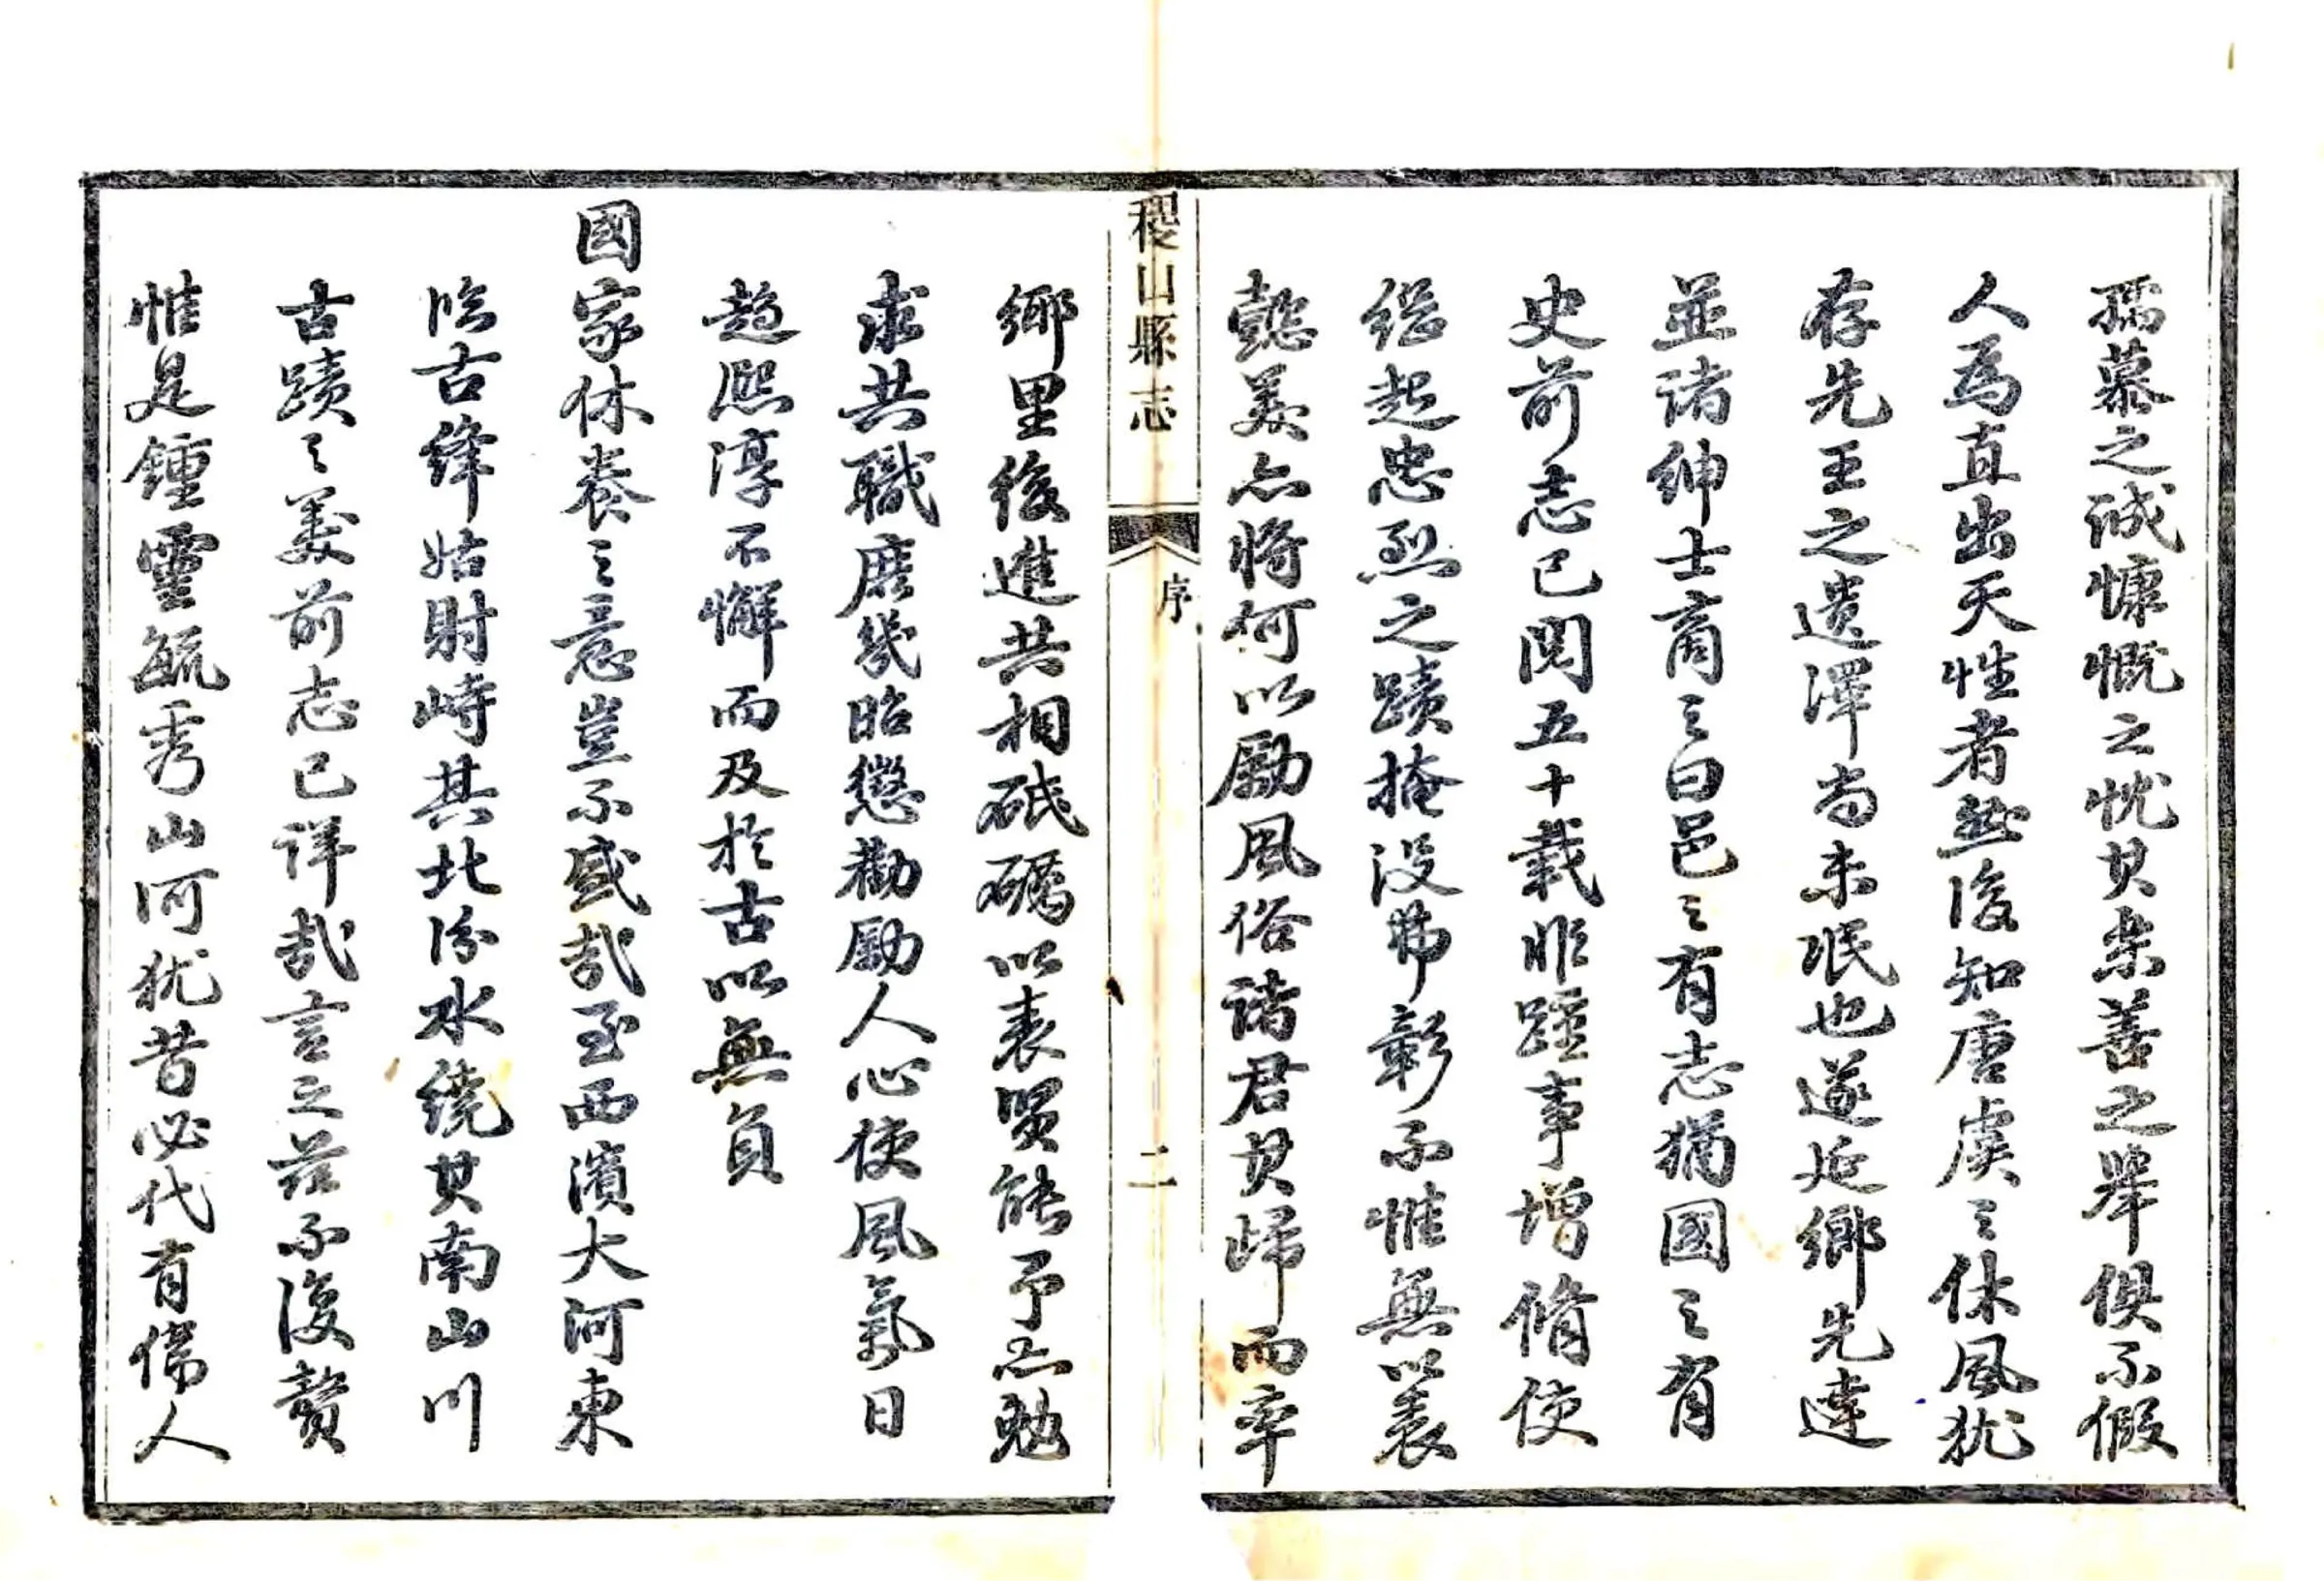 孺慕之誠慷慨之忱其樂善之舉俱不假
人為直出天性者然後知唐虞之休風猶
存先王之遺澤尚未泯也遂延鄉先達
並諸紳士商之曰邑之有志猶國之有
史前志已閱五十載非踵事增脩使
繼起忠烈之蹟掩沒弗彰不惟無以表
懿美亦將何以勵風俗諸君其歸而率
稷山縣志
序
二
鄉里後進共相砥礪以表賢能予亦勉
求共職庶幾昭懲勸勵人心使風氣日
趨熙淳不懈而及於古以無負
國家休養之意豈不盛哉至西濱大河東
臨古絳姑射峙其北汾水繞其南山川
古蹟之美前志已詳哉言之茲不復贅
惟是鍾靈毓秀山河猶昔必代有偉人